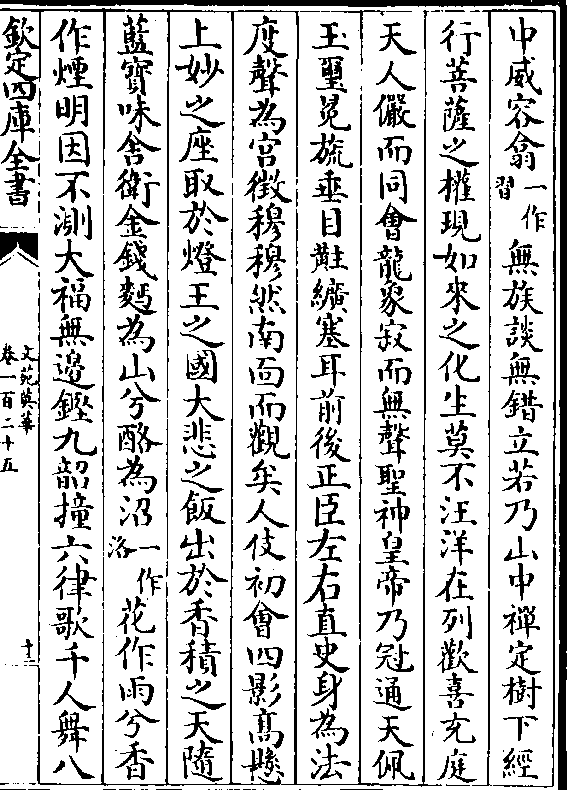 中威容翕一作習無族談無錯立若乃山中禪定樹下經
行菩薩之權現如來之化生莫不汪洋在列歡喜充庭
天人儼而同會龍象寂而無聲聖神皇帝乃冠通天佩
玉璽冕旒垂目黈纊塞耳前後正臣左右直史身為法
度聲為宮徴穆穆然南面而觀矣人伎初會四影高懸
上妙之座取於燈王之國大悲之飯出於香積之天隨
藍寳味舍衛金錢麫為山兮酪為沼一作洛花作雨兮香
作煙明因不測大福無邉鏗九韶撞六律歌千人舞八
欽定四庫全書
文苑英華
卷一百二十五
十二